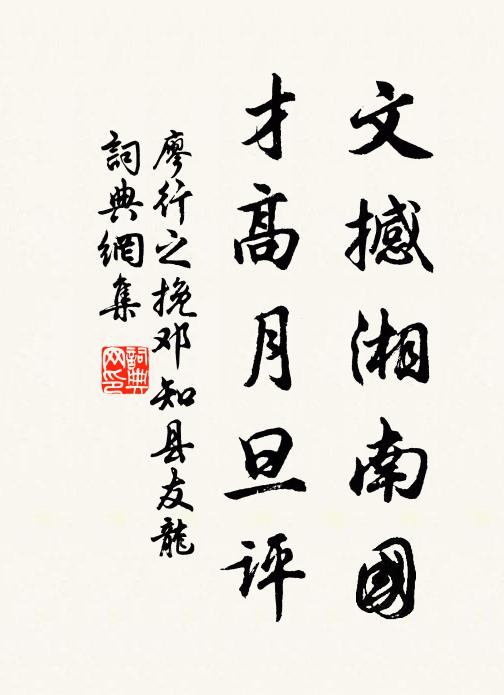 文撼湘南國
才高月旦评
廖行之挽邓知县友龍
詞典網集
詞典網印